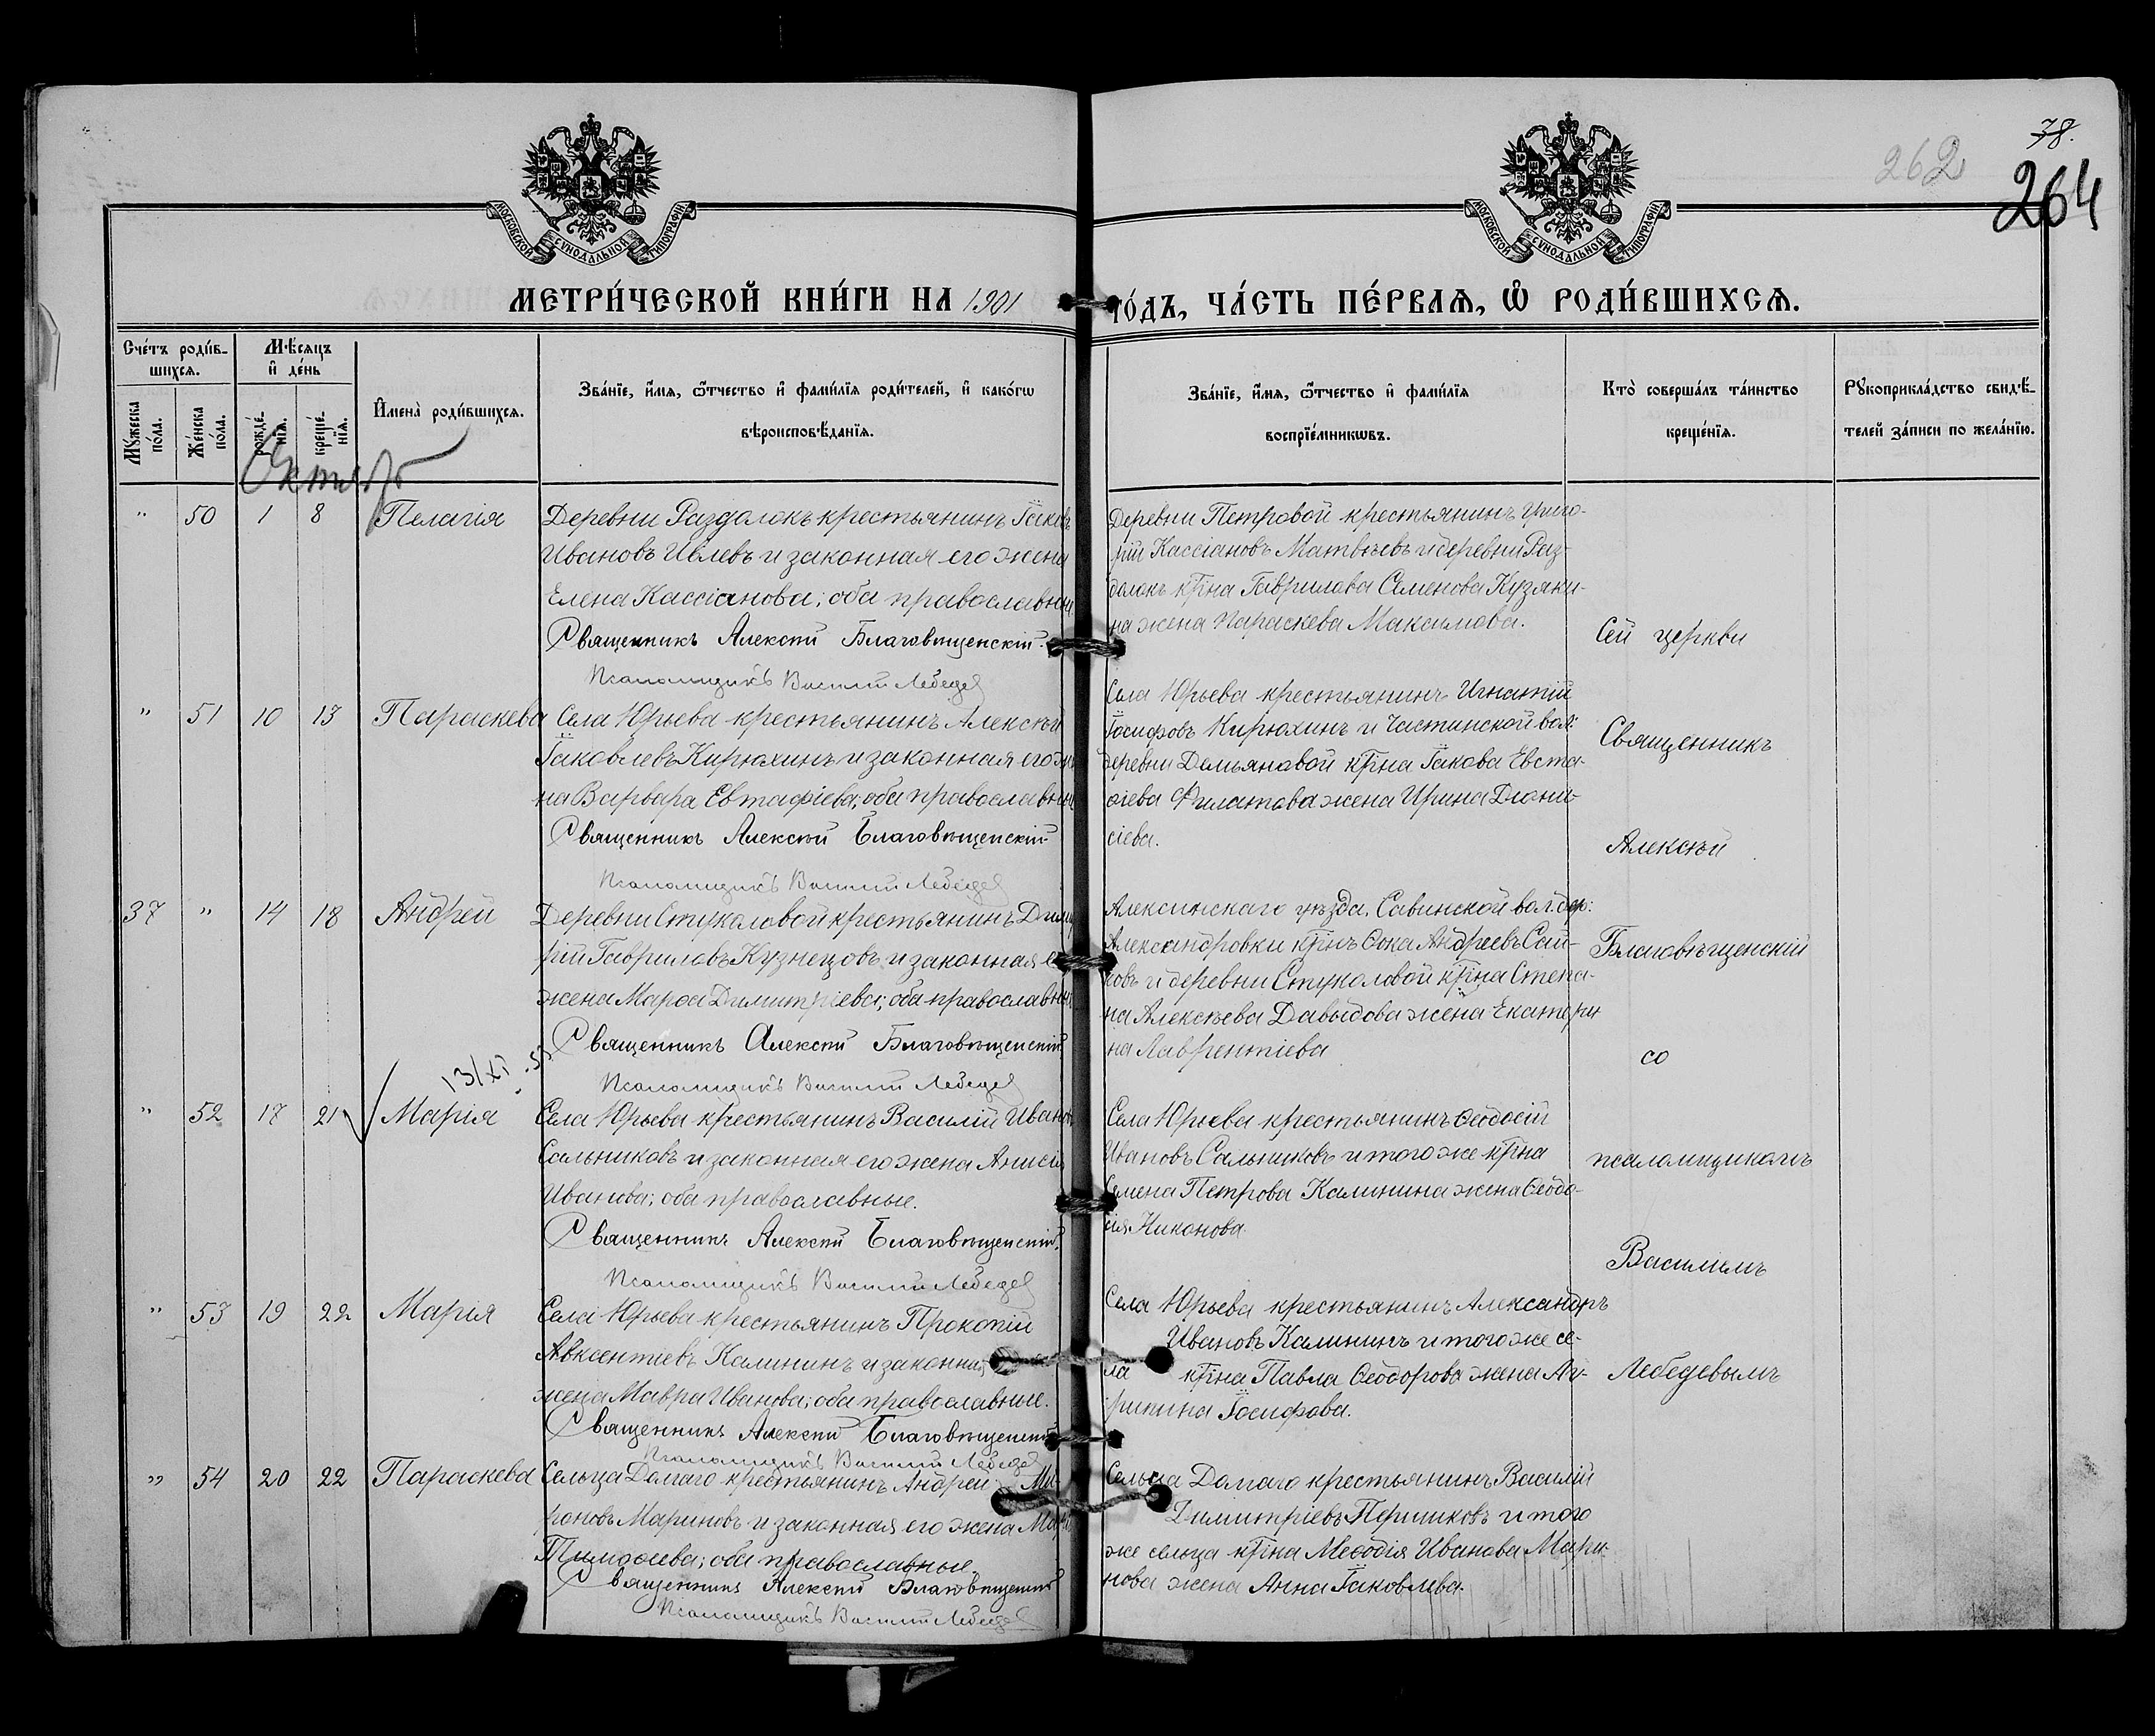 78.
262
264
МОСКОВСКОЙ СѴНОДАЛЬНОЙ ТИПОГРАФІИ
МОСКОВСКОЙ СѴНОДАЛЬНОЙ ТИПОГРАФІИ
МЕТРИ́ЧЕСКОЙ КНИ́ГИ НА 1901 ГО́ДЪ, ЧА́СТЬ ПЕ́РВАѦ, Ѡ҆ РОДИ́ВШИХСѦ.
Сче́тъ роди́в-
шихсѧ.
Мꙋ́жеска по́ла.
Же́нска по́ла.
Мѣ́сѧцъ
и҆ де́нь
рожде́-
нїѧ.
креще́-
нїѧ.
И҆мена̀ роди́вшихсѧ.
Зва́нїе, и҆́мѧ, ѻ҆́тчество и҆ фами́лїѧ роди́телей, и҆ како́гѡ
вѣроисповѣ́данїѧ.
Зва́нїе, и҆́мѧ, ѻ҆́тчество и҆ фами́лїѧ
воспрїе́мникѡвъ.
Кто̀ соверша́лъ та́инство
креще́нїѧ.
Рꙋкоприкла́дство свидѣ́-
телей за́писи по жела́нїю.
Октябрь
" 50 1 8 Пелагія
Деревни Раздолокъ крестьянинъ Іаковъ
Ивановъ Ивлевъ и законная его жена
Елена Кассіанова; оба православные
Священникъ Алексѣй Благовѣщенскій.
Псаломщикъ Василій Лебедев
Деревни Петровой крестьянинъ Григо-
рій Кассіановъ Матвѣевъ и деревни Раз-
долокъ кр͠на Гаврилова Семенова Кузяки-
на жена Параскева Максимова.
" 51 10 13 Параскева
Села Юрьева крестьянинъ Алексѣй
Іаковлевъ Кирюхинъ и законная его же-
на Варвара Евтафіева; оба православные
Священникъ Алексѣй Благовѣщенскій
Псаломщикъ Василій Лебедев
Села Юрьева крестьянинъ Игнатій
Іосифовъ Кирюхинъ и Частинской вол:
деревни Демьяновой кр͠на Іакова Евста-
ѳіева Филатова жена Ирина Діони-
сіева.
37 " 14 18 Андрей
Деревни Стукаловой крестьянинъ Дими-
рій Гавриловъ Кузнецовъ и законная е
жена Марѳа Димитріева; оба православные
Священникъ Алексѣй Благовѣщенскій
Псаломщикъ Василій Лебедев
Алексинскаго уѣзда, Савинской вол. дер:
Александровки кр͠нъ Ѳока Андреевъ Сай-
ковъ и деревни Стукаловой кр͠на Степа-
на Алексѣева Давыдова жена Екатери
на Лаврентіева
13/XI - 53
" 52 17 21 Марія
Села Юрьева крестьянинъ Василій Иванов
Сальниковъ и законная его жена Анисія
Иванова; оба православные.
Священникъ Алексѣй Благовѣщенскій.
Псаломщикъ Василій Лебедев
Села Юрьева крестьянинъ Ѳеодосій
Ивановъ Сальниковъ и того же кр͠на
Семена Петрова Калинина жена Ѳеодо-
сія Никонова
" 53 19 22 Марія
Села Юрьева крестьянинъ Прокопій
Авксентіевъ Калининъ и законная
жена Мавра Иванова; оба православные.
Священникъ Алексѣй Благовѣщенскій
Псаломщикъ Василій Лебедев
Села Юрьева крестьянинъ Александръ
Ивановъ Калининъ и того же се-
ла кр͠на Павла Ѳеодорова жена Аг-
рипина Іосифова.
" 54 20 22 Параскева
Сельца Долгаго крестьянинъ Андрей Ми-
роновъ Мариновъ и законная его жена
Тимоѳеева; оба православные
Священникъ Алексѣй Благовѣщенскій
Псаломщикъ Василій Лебедев
Сельца Долгаго крестьянинъ Василій
Димитріевъ Першиковъ и того
же сельца кр͠на Меѳодія Иванова Мари-
нова жена Анна Іаковлева.
Сей церкви
Священникъ
Алексѣй
Благовѣщенскій
со
псаломщикомъ
Василіемъ
Лебедевымъ